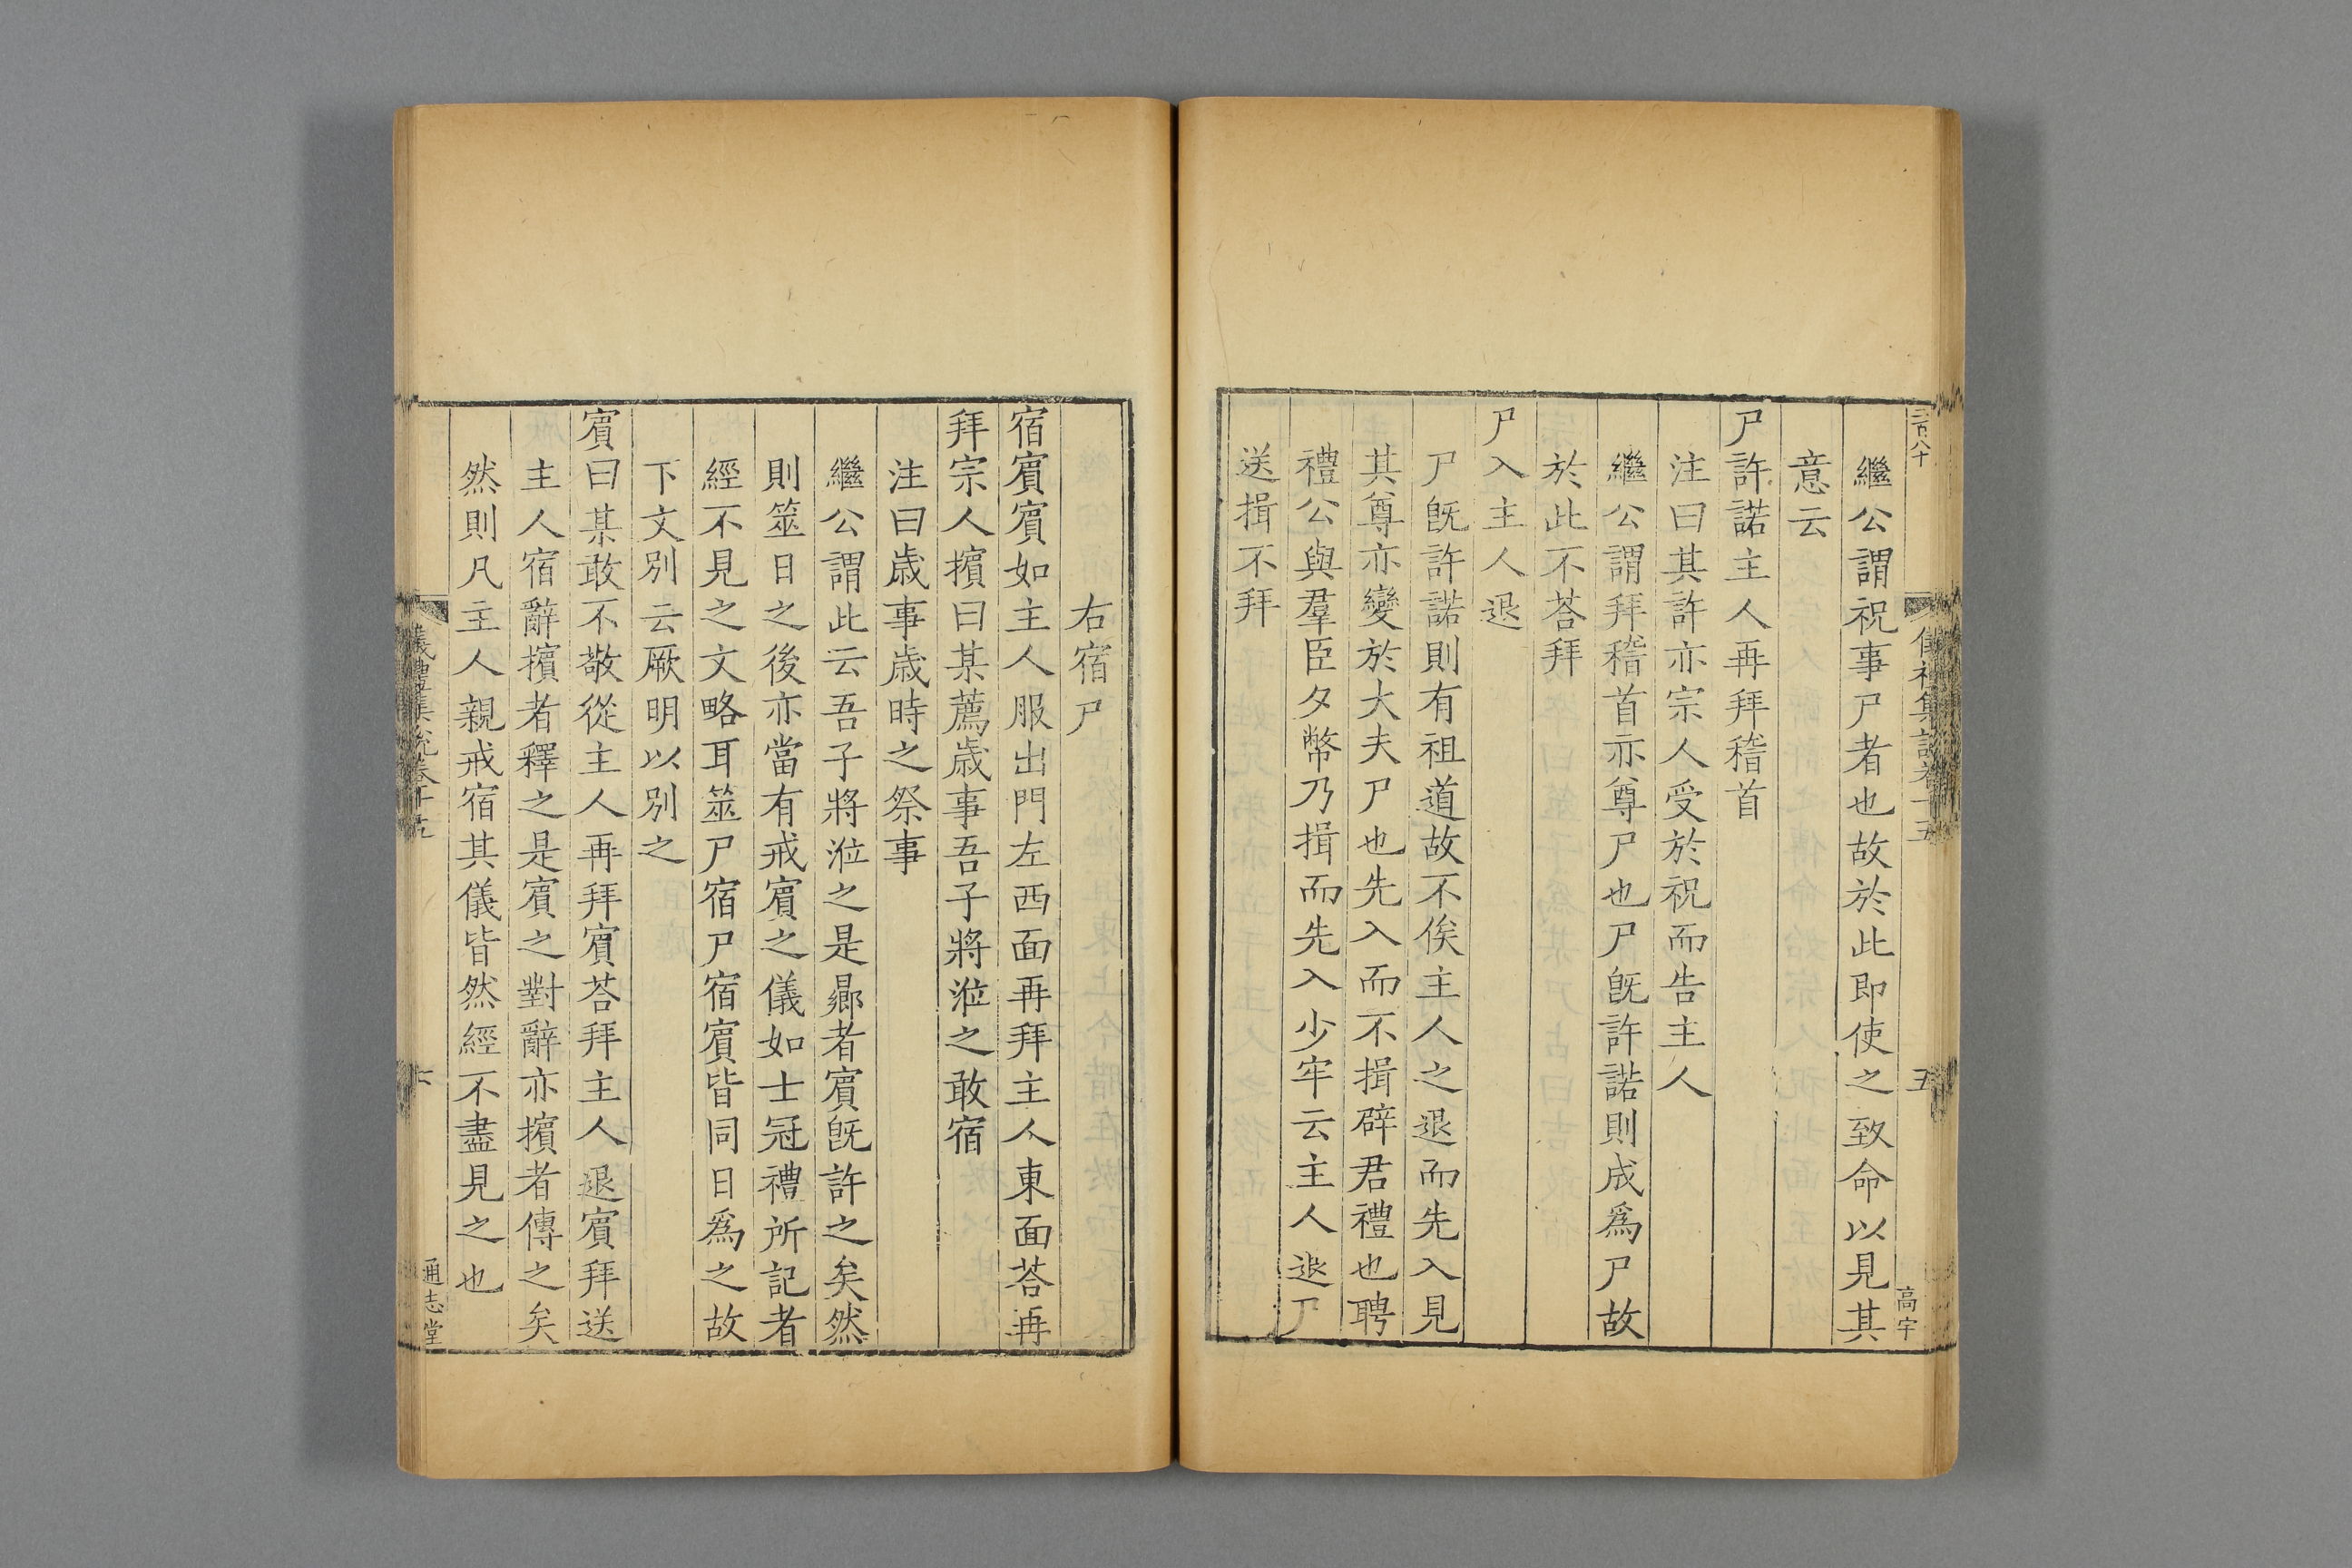 二百八十
儀禮集說卷十五
五
高宇
繼公謂祝事尸者也故於此即使之致命以見其
意云
尸許諾主人再拜稽首
注曰其許亦宗人受於祝而告主人
繼公謂拜稽首亦尊尸也尸旣許諾則成爲尸故
於此不荅拜
尸入主人退
尸旣許諾則有祖道故不俟主人之退而先入見
其尊亦變於大夫尸也先入而不揖辟君禮也聘
禮公與羣臣夕幣乃揖而先入少牢云主人退尸
送揖不拜
右宿尸
宿賓賓如主人服出門左西面再拜主人東面荅再
拜宗人擯曰某薦歲事吾子將涖之敢宿
注曰歲事歲時之祭事
繼公謂此云吾子將涖之是鄉者賓旣許之矣然
則筮日之後亦當有戒賓之儀如士冠禮所記者
經不見之文略耳筮尸宿尸宿賓皆同日爲之故
下文別云厥明以別之
賓曰某敢不敬從主人再拜賓荅拜主人退賓拜送
主人宿辭擯者釋之是賓之對辭亦擯者傳之矣
然則凡主人親戒宿其儀皆然經不盡見之也
儀禮集說卷十五
六
通志堂